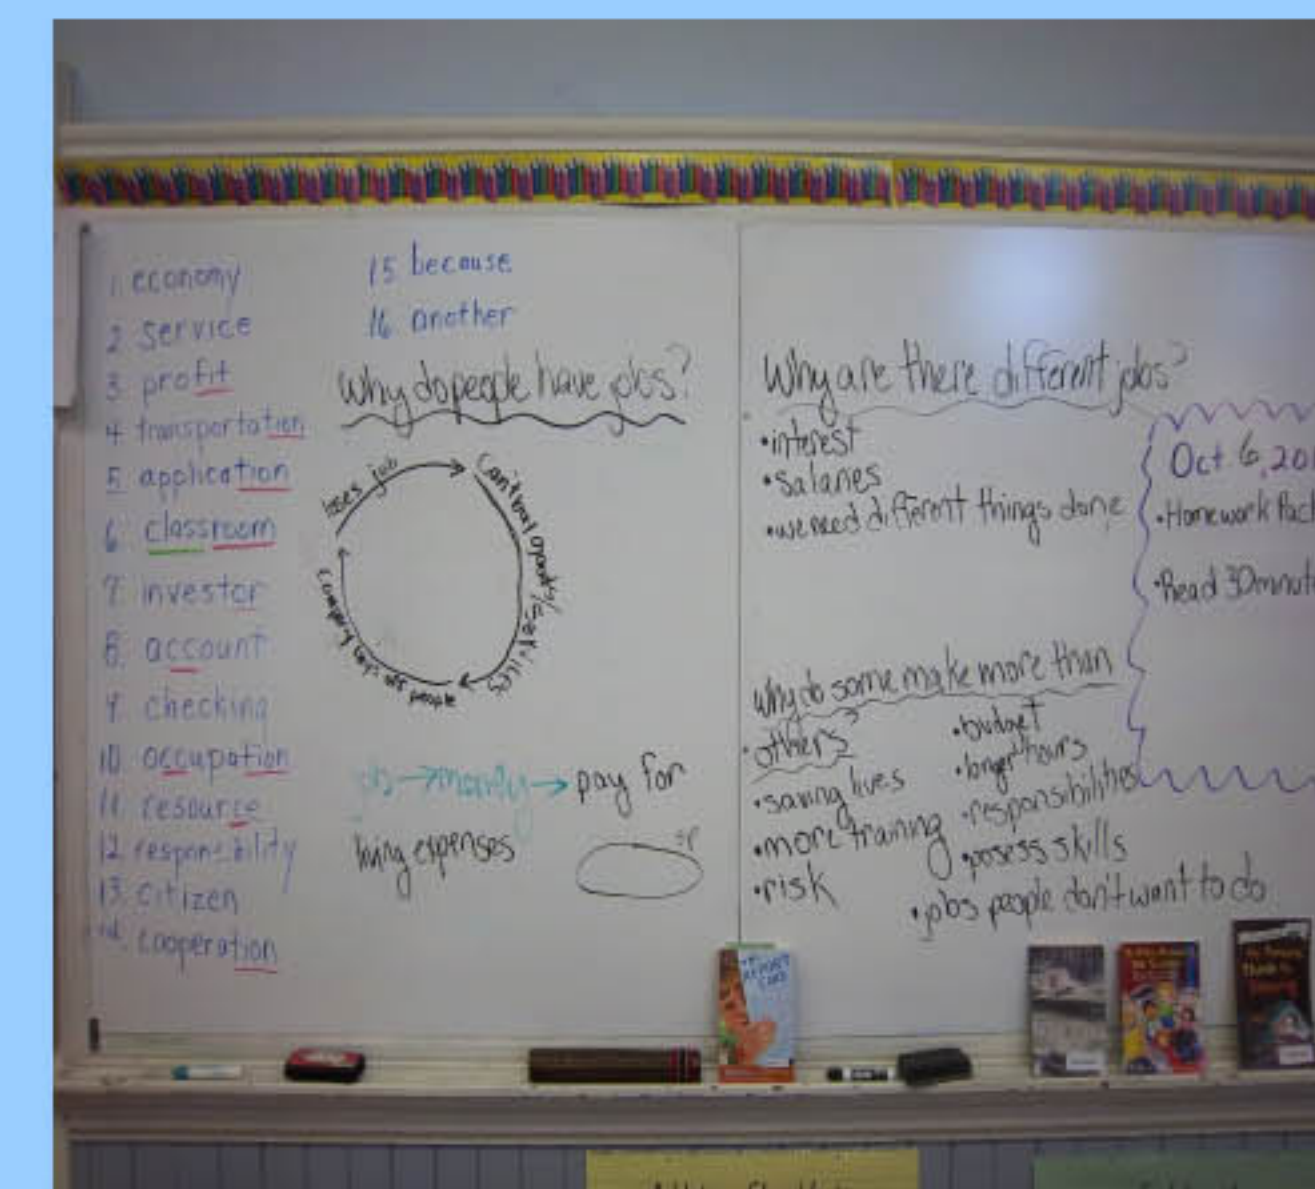 1. economy
2 service
3 profit
4 transportation
5 application
6. classroom
7. investor
8. account
9. checking
10. occupation
11 resource
12 responsibility
13 citizen
14. cooperation
15 because
16 another
Why do people have jobs?
loses job
Can't buy goods/services
people
job → money → pay for
living expenses
Why are there different jobs?
•interest
•salaries
•we need different things done
Oct 6, 201
•Homework Pack
•Read 30 minute
Why do some make more than
others?
•saving lives
•more training
•risk
•budget
•longer hours
•responsibilities
•posess skills
•jobs people don't want to do
REPORT
CARD